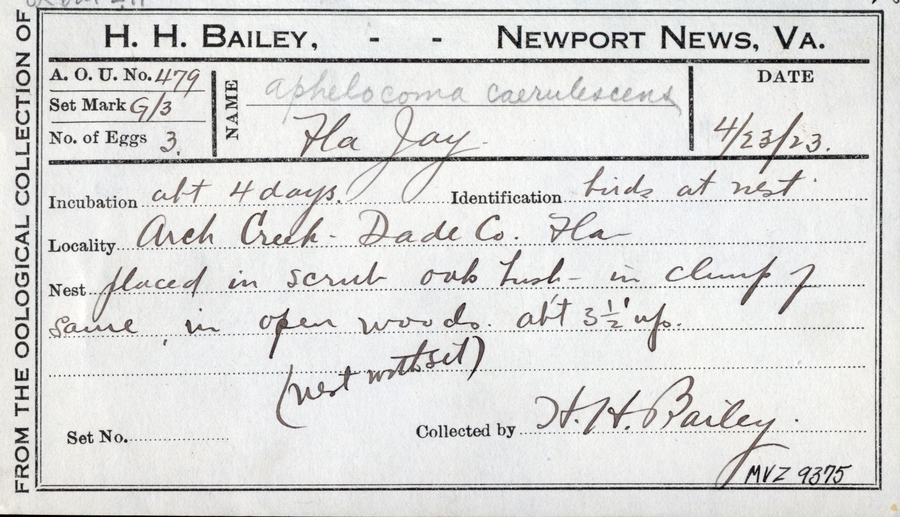 FROM THE OOLOGICAL COLLECTION OF
H. H. BAILEY, - - NEWPORT NEWS, VA.
A. O. U. No. 479
Set Mark G/3
No. of Eggs 3.
NAME
aphelocoma caerulescens
Fla Jay.
DATE
4/23/23.
Incubation abt 4 days. Identification birds at nest
Locality Arch Creek - Dade Co. Fla
Nest placed in scrub oak bush - in clump of
same, in open woods. abt 3 1/2' up.
(nest with set)
Set No. Collected by H. H. Bailey.
MVZ 9375